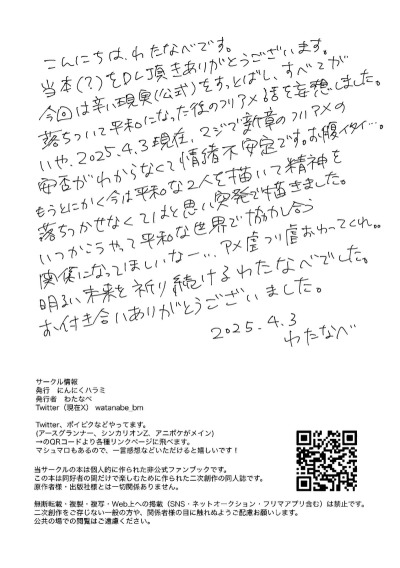 こんにちは、わたなべです。
当本(?)をDL頂きありがとうございます。
今回は辛い現実(公式)をすっとばし、すべてが
落ちついて平和になった後のフリアメ話を妄想しました。
いや、2025.4.3現在、マジで新章のフリアメの
安否がわからなくて情緒不安定です。お腹イタイ…。
もうとにかく今は平和な2人を描いて精神を
落ちつかせなくてはと思い突発で描きました。
いつかこうやって平和な世界で協力し合う
関係になってほしいなー…、アメ虐フリ虐おわってくれ。。
明るい未来を祈り続けるわたなべでした。
お付き合いありがとうございました。
2025.4.3
わたなべ
サークル情報
発行 にんにくハラミ
発行者 わたなべ
Twitter(現在X) watanabe_bm
Twitter、ポイピクなどやってます。
(アースグランナー、シンカリオンZ、アニポケがメイン)
→のQRコードより各種リンクページに飛べます。
マシュマロもあるので、一言感想などいただけると嬉しいです!
当サークルの本は個人的に作られた非公式ファンブックです。
この本は同好者の間だけで楽しむために作られた二次創作の同人誌です。
原作者様・出版社様とは一切関係ありません。
無断転載・複製・複写・Web上への掲載(SNS・ネットオークション・フリマアプリ含む)は禁止です。
二次創作をご存じない一般の方や、関係者様の目に触れぬようご配慮お願いします。
公共の場での閲覧はご遠慮ください。